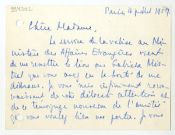 Paris 4 juillet 1957
Chère Madame,
Le service de la valise au Mi-
nistère des Affaires Etrangères vient
de me remettre le livre sur Gabriela Mis-
tral que vous avez eu la bonté de me
dédicacer. Je vous suis infiniment recon-
naissant de cette délicate attention et
de ce témoignage nouveau de l'amitié
que vous voulez bien me porter. Je vous